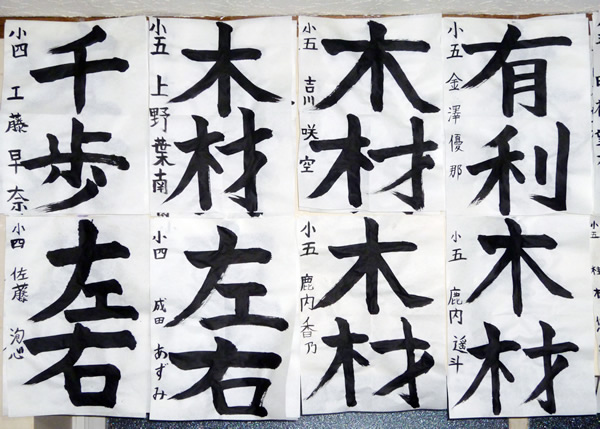 千歩
小四 工藤早奈
木材
小五 上野葉南
木材
小五 吉川咲空
有利
小五 金澤優那
左右
小四 佐藤
左右
小四 成田あずみ
木材
小五 鹿内香乃
木材
小五 鹿内遥斗